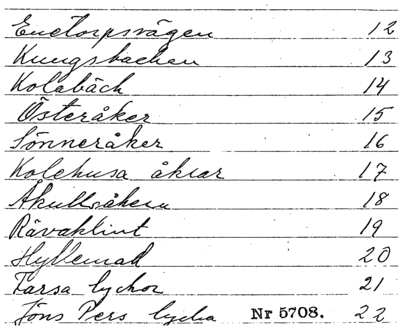 Enetorpsvägen 12
Kungsbacken 13
Kolabäck 14
Österåker 15
Sönneråker 16
Kolehusa åkrar 17
Åkullsåkern 18
Rävaklint 19
Hyllemad 20
Farsa lyckor 21
Jöns Pers lycka Nr 5708. 22